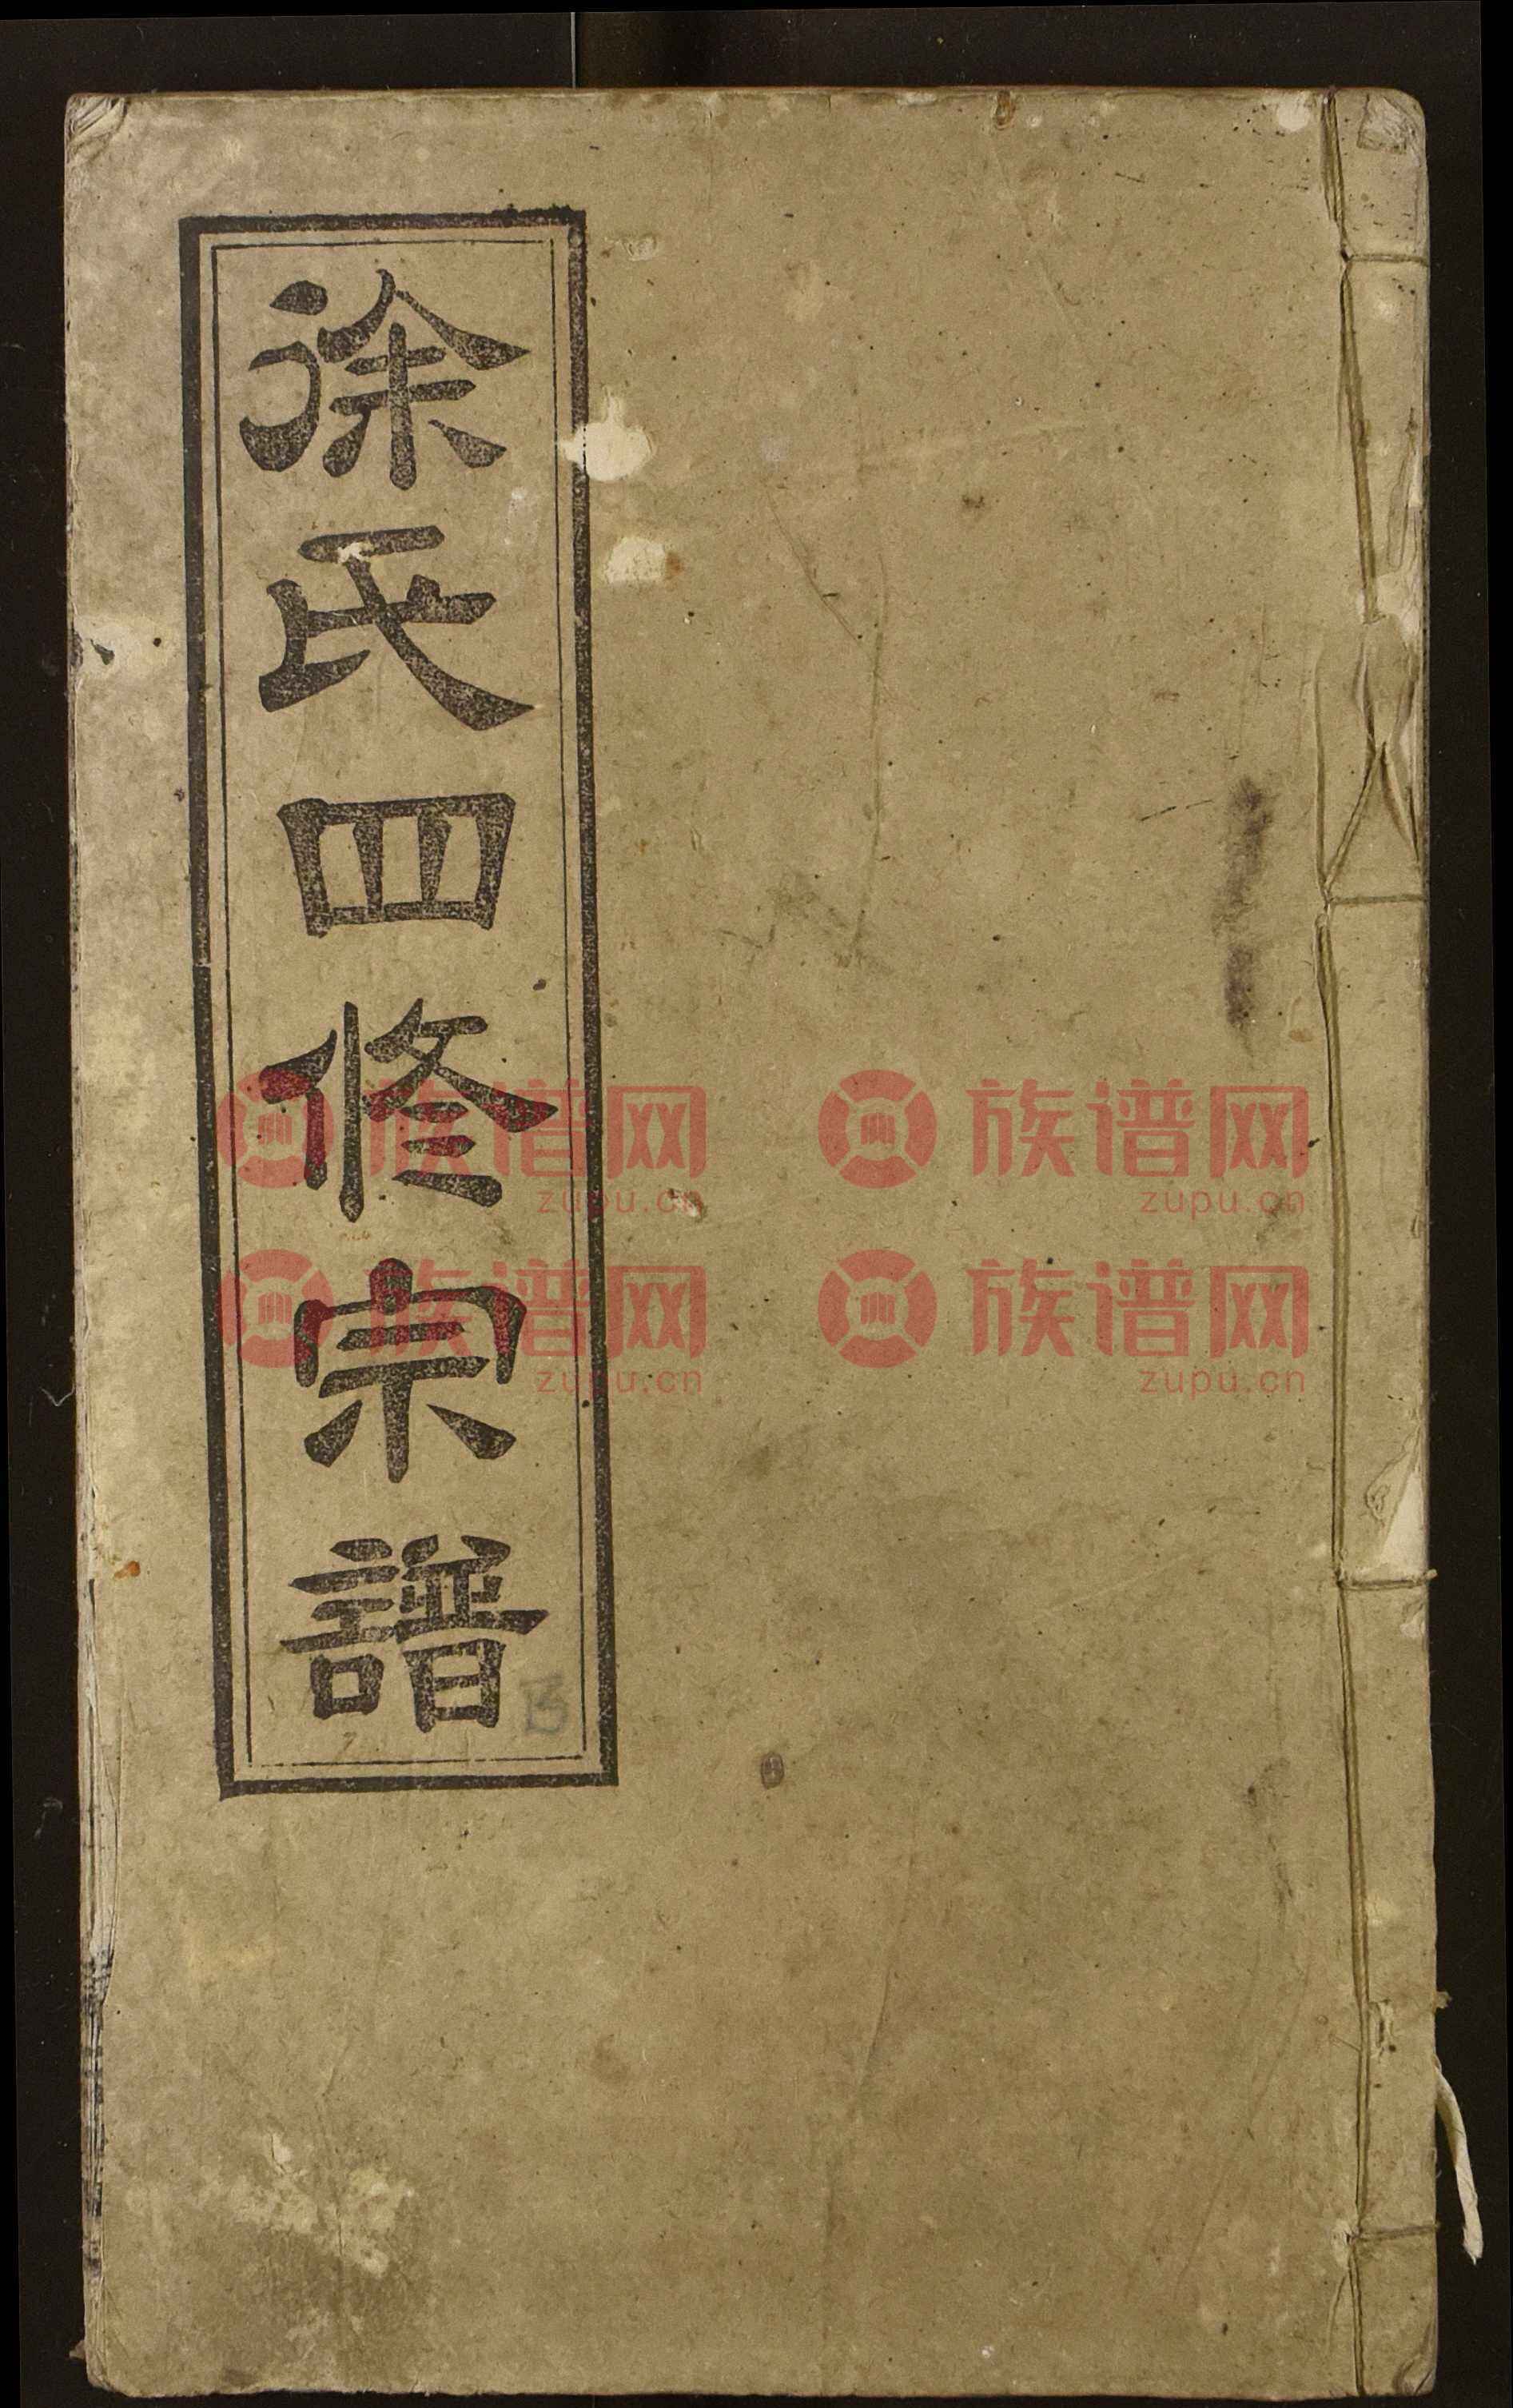 徐氏四修宗譜
B
族谱网 族谱网
zupu.cn zupu.cn
族谱网 族谱网
zupu.cn zupu.cn